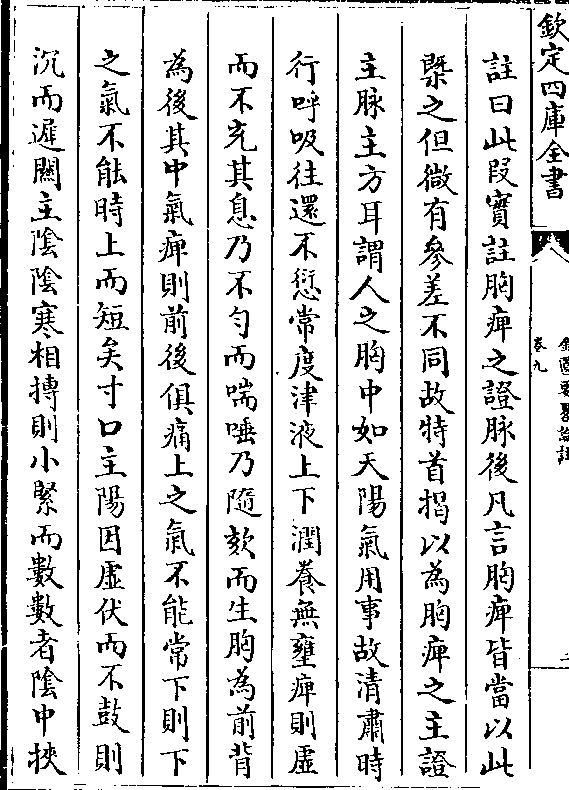 欽定四庫全書
卷九
註曰此段實註胸痺之證脉後凡言胸痺皆當以此
槩之但微有參差不同故特首揭以為胸痺之主證
主脉主方耳謂人之胸中如天陽氣用事故清肅時
行呼吸往還不愆常度津液上下潤養無壅痺則虛
而不充其息乃不勻而喘唾乃隨欬而生胸為前背
為後其中氣痺則前後俱痛上之氣不能常下則下
之氣不能時上而短矣寸口主陽因虛伏而不鼓則
沉而遲關主陰陰寒相摶則小緊而數數者陰中挾